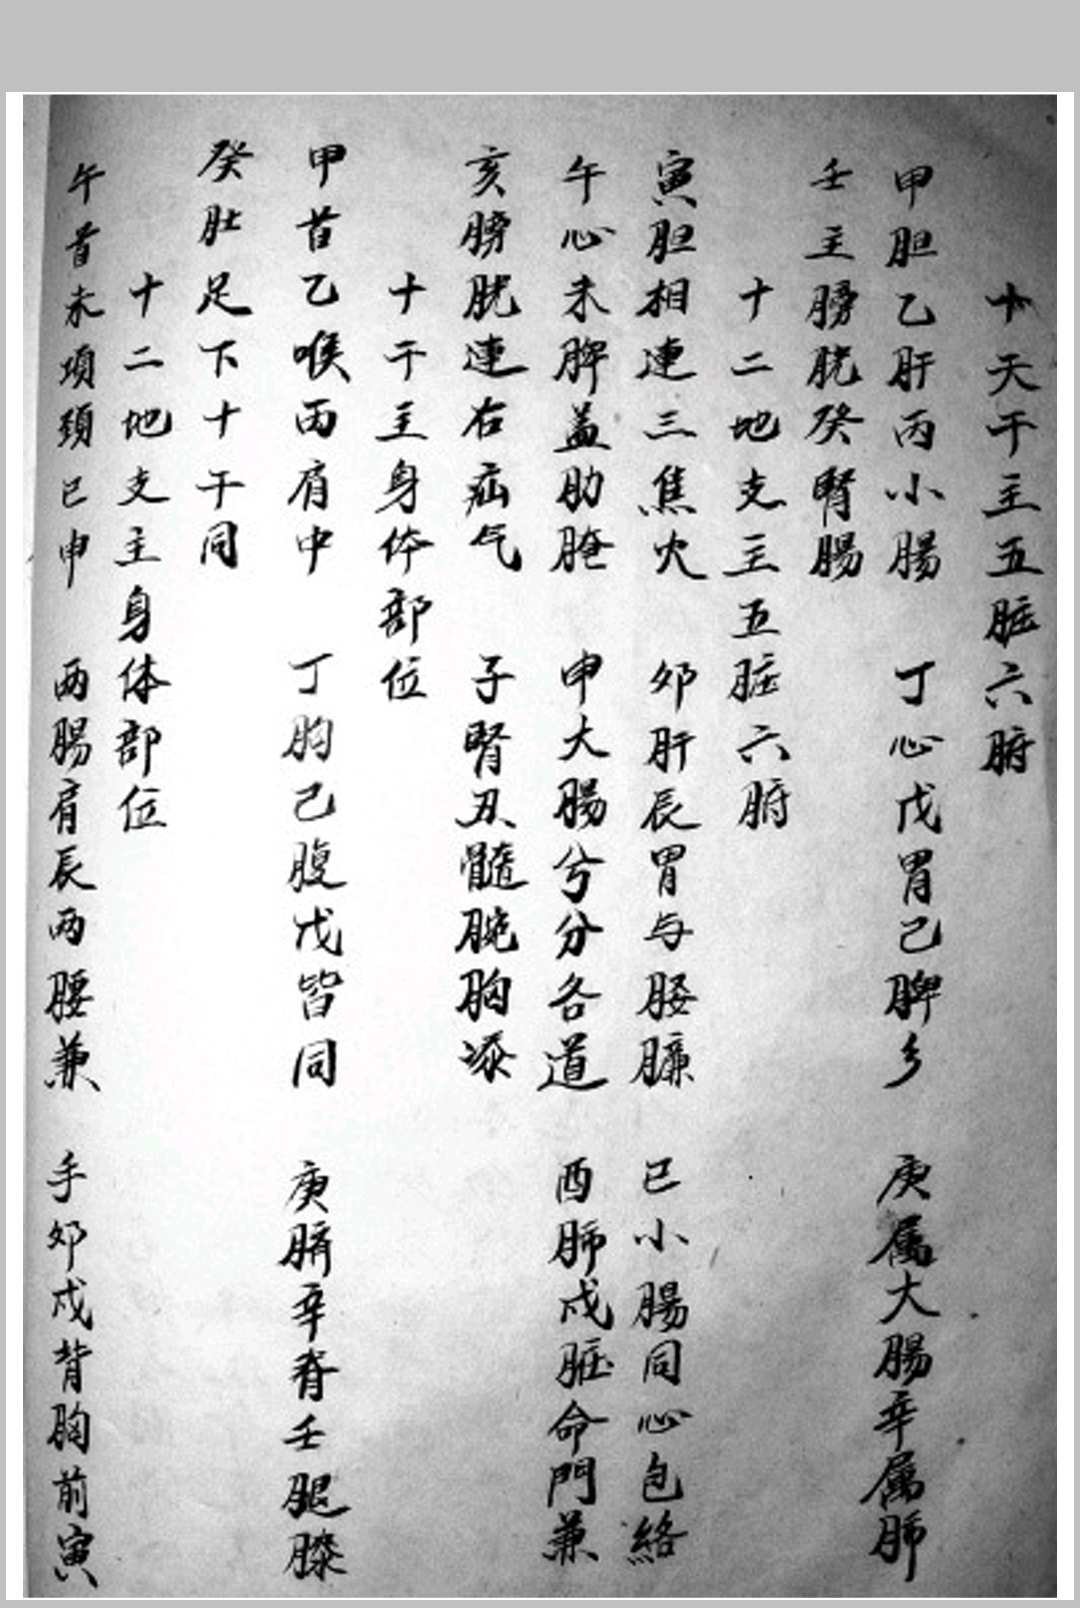 十天干主五脏六腑
甲胆乙肝丙小腸 丁心戊胃己脾乡 庚属大腸辛属肺
壬主膀胱癸腎腸
十二地支主五脏六腑
寅胆相連三焦火 卯肝辰胃与腰臁 巳小腸同心包絡
午心未脾盖肋腌 申大腸兮分各道 酉肺戌脏命門兼
亥膀胱連右疝气 子腎丑髓腕胸添
十干主身体部位
甲首乙喉丙肩中 丁胸己腹戊皆同 庚臍辛脊壬腿膝
癸肚足下十干同
十二地支主身体部位
午首未項頚巳申 两腸肩辰两腰兼 手卯戌背胸前寅